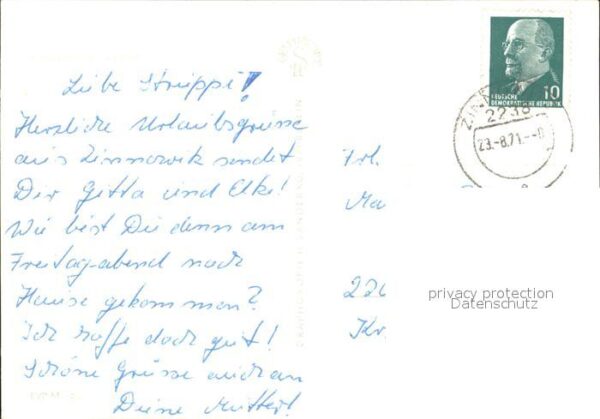 Liebe Struppi!
Herzliche Urlaubsgrüsse
aus Zinnowitz sendet
Dir Gitta und Elke!
Wie bist Du denn am
Freitag-abend nach
Hause gekommen?
Ich hoffe doch gut!
Schöne Grüsse auch an
Deine Mutter!
10
DEUTSCHE
DEMOKRATISCHE REPUBLIK
2238
23.-8.71.--
Frl.
Ma
220
Kr
privacy protection
Datenschutz